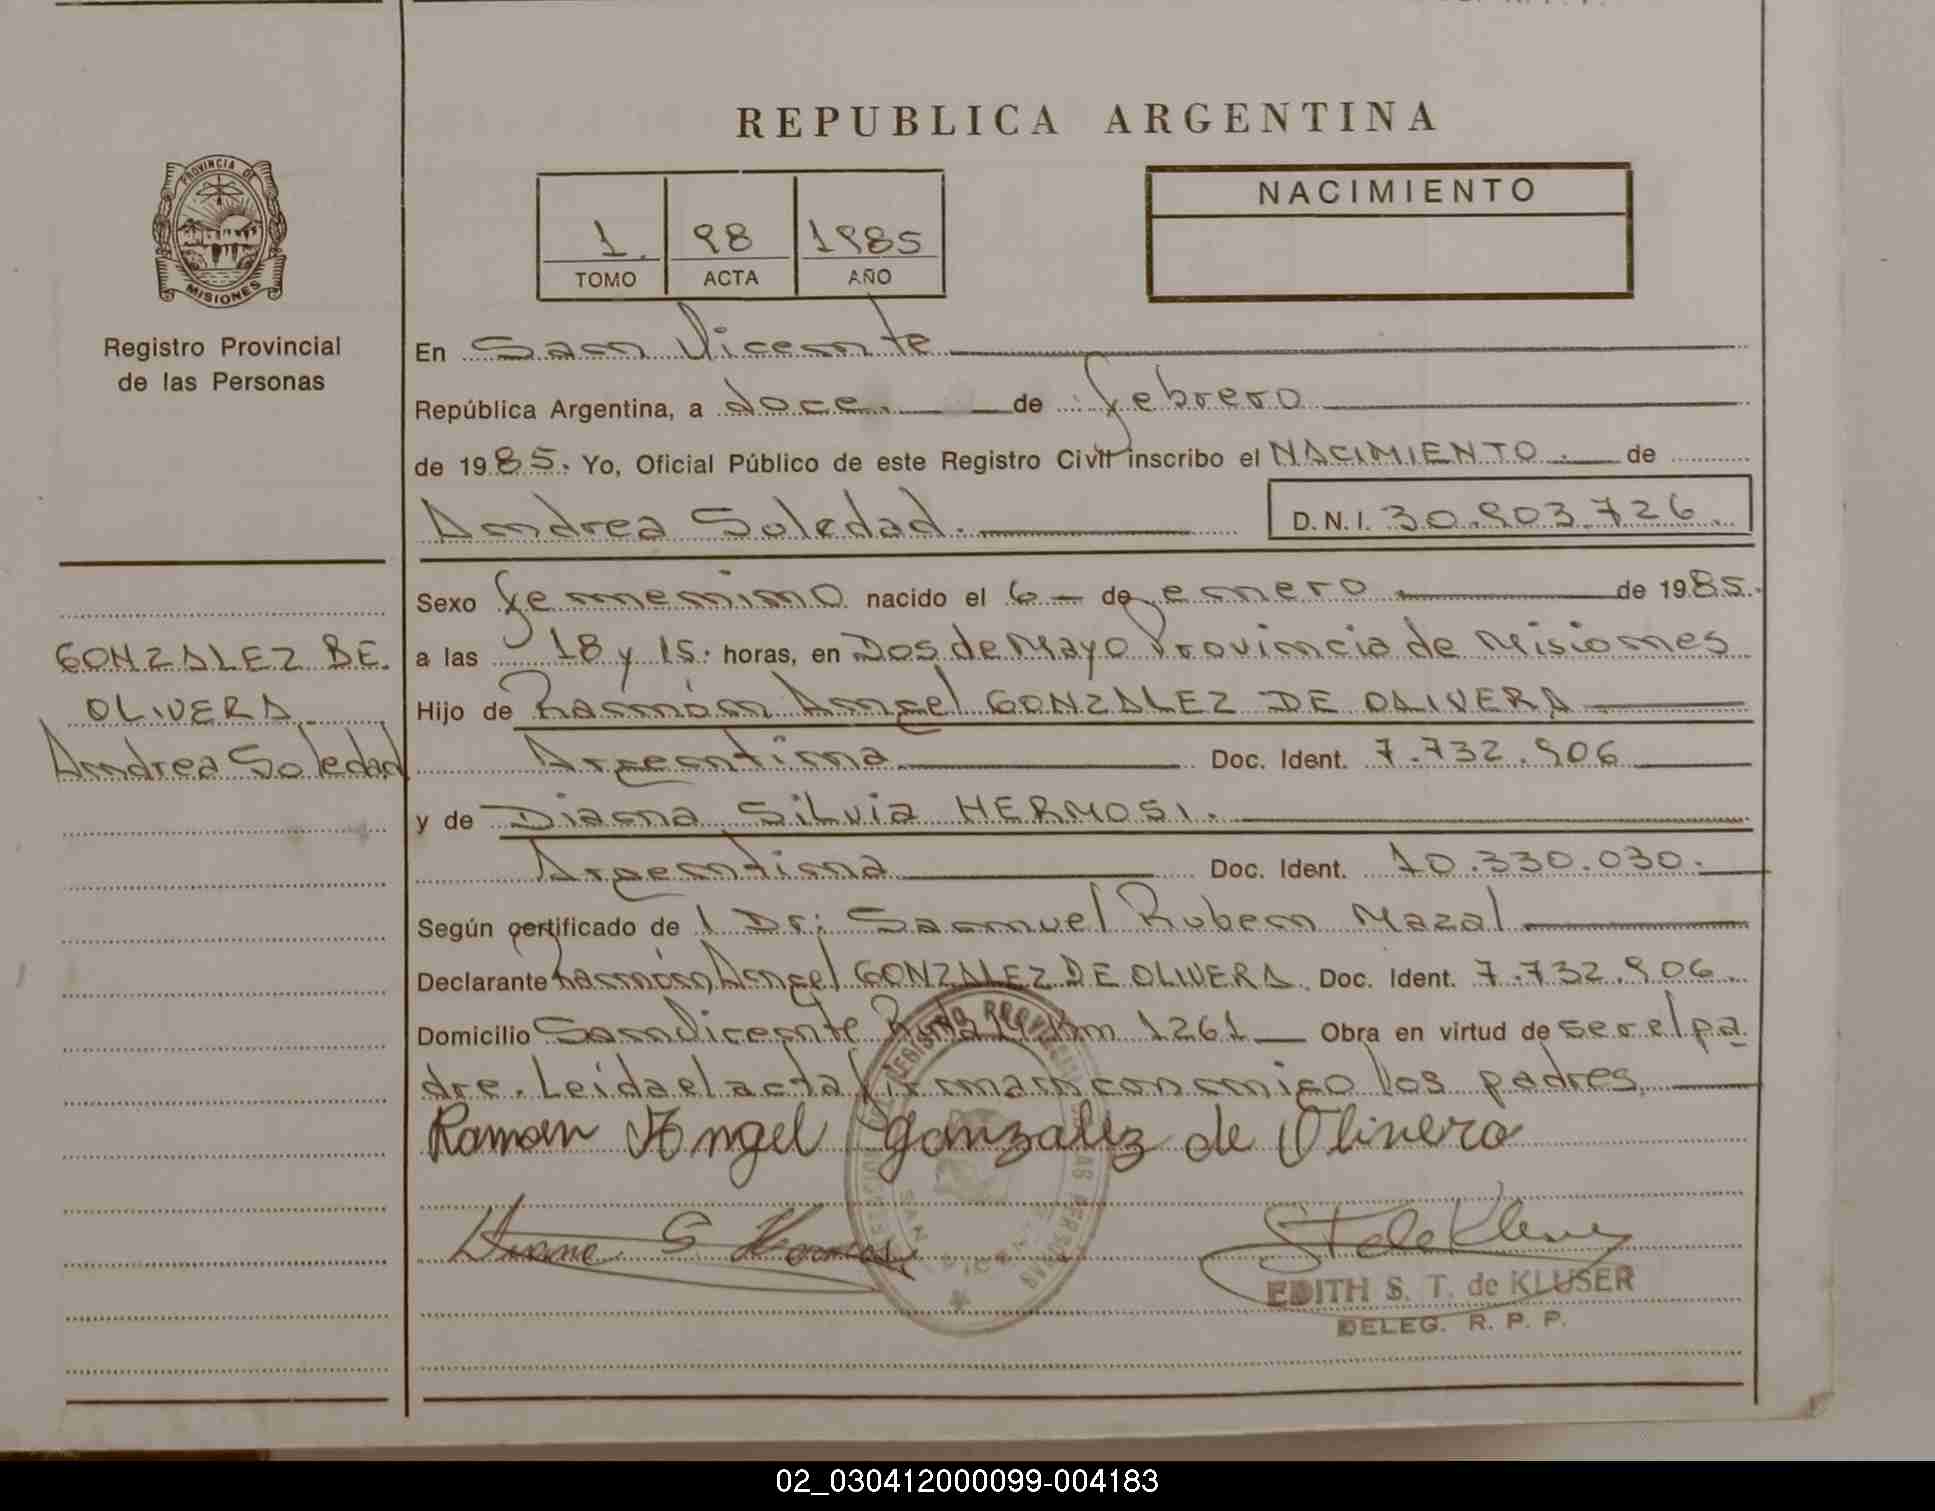 REPUBLICA ARGENTINA
PROVINCIA DE
MISIONES
Registro Provincial
de las Personas
1. 98 1985
TOMO ACTA AÑO
NACIMIENTO
En San Vicente
República Argentina, a doce. de febrero
de 1985. Yo, Oficial Público de este Registro Civil inscribo el NACIMIENTO. de
Andrea Soledad. D.N.I. 30.903.726.
GONZALEZ DE.
OLIVERA
Andrea Soledad
Sexo femenino nacido el 6 - de enero de 1985.
a las 18 y 15. horas, en Dos de Mayo Provincia de Misiones
Hijo de Ramón Angel GONZALEZ DE OLIVERA
Argentina Doc. Ident. 7.732.906
y de Diana Silvia HERMOSI.
Argentina Doc. Ident. 10.330.030.
Según certificado de l Dr: Samuel Ruben Mazal
Declarante Ramón Angel GONZALEZ DE OLIVERA. Doc. Ident. 7.732.906.
Domicilio San Vicente Ruta 14 Km 1261 Obra en virtud de ser el pa
dre. Leida el acta firman conmigo los padres.
Ramon Angel Gonzalez de Olivera
EDITH S. T. de KLUSER
DELEG. R. P. P.
02_030412000099-004183